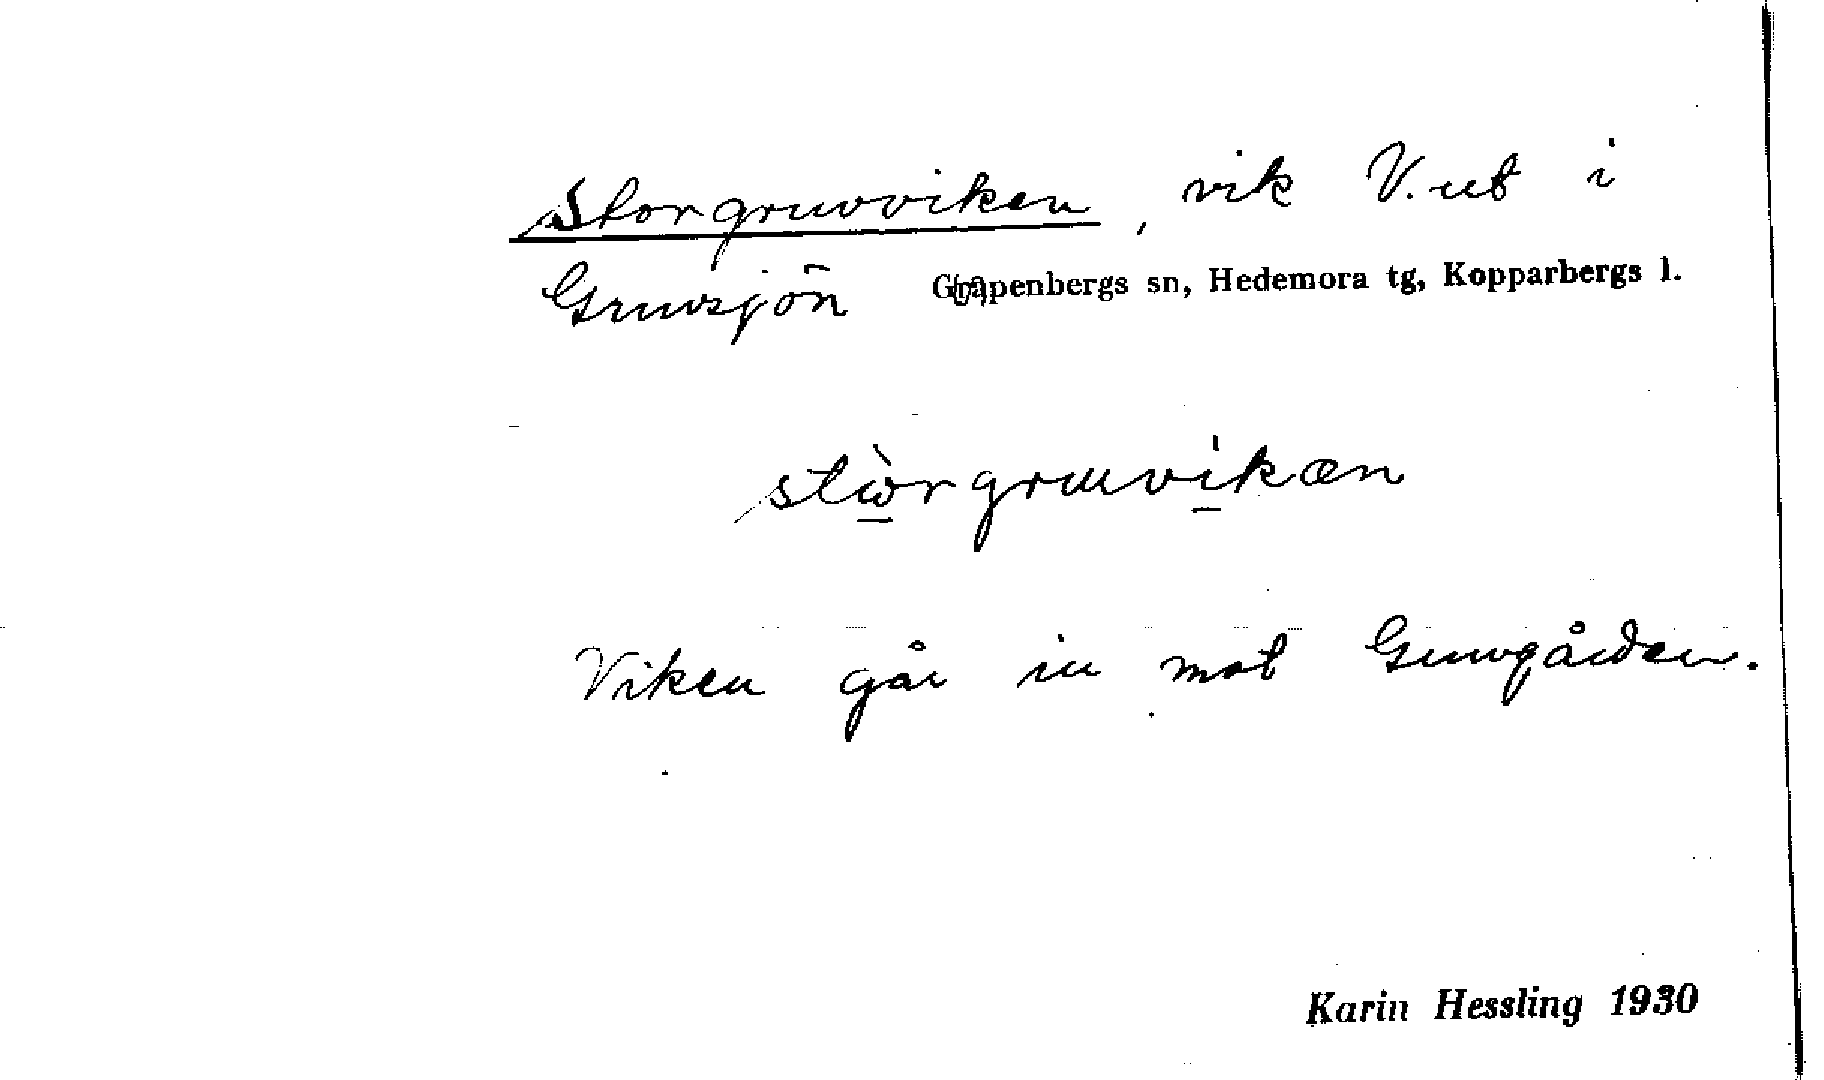 Storgruvviken, vik V. ut i
Gruvsjön Grapenbergs sn, Hedemora tg, Kopparbergs l.
stὼrgruvvikæn
Viken går in mot Gruvgården.
Karin Hessling 1930